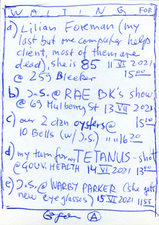 WAITING FOR
a) Lilian Foreman (my
last but one computer helps
client, most of them are
dead), she is 85 11 VI 2021
@ 259 Bleeker 15:00
b) J.S. @ RAE BK's show
@ 69 Mulberry St 13 VI 2021
c) our 2 dzn oysters @ 15:00
10 Bells (w/J.S.) 11 16 20
d) my turn for TETANUS-shot
@ GOUV. HEALTH 14 VI 2021 13:00
e) J.S. @ WARBY PARKER (she gets
new eyeglasses) 15 VI 2021
A